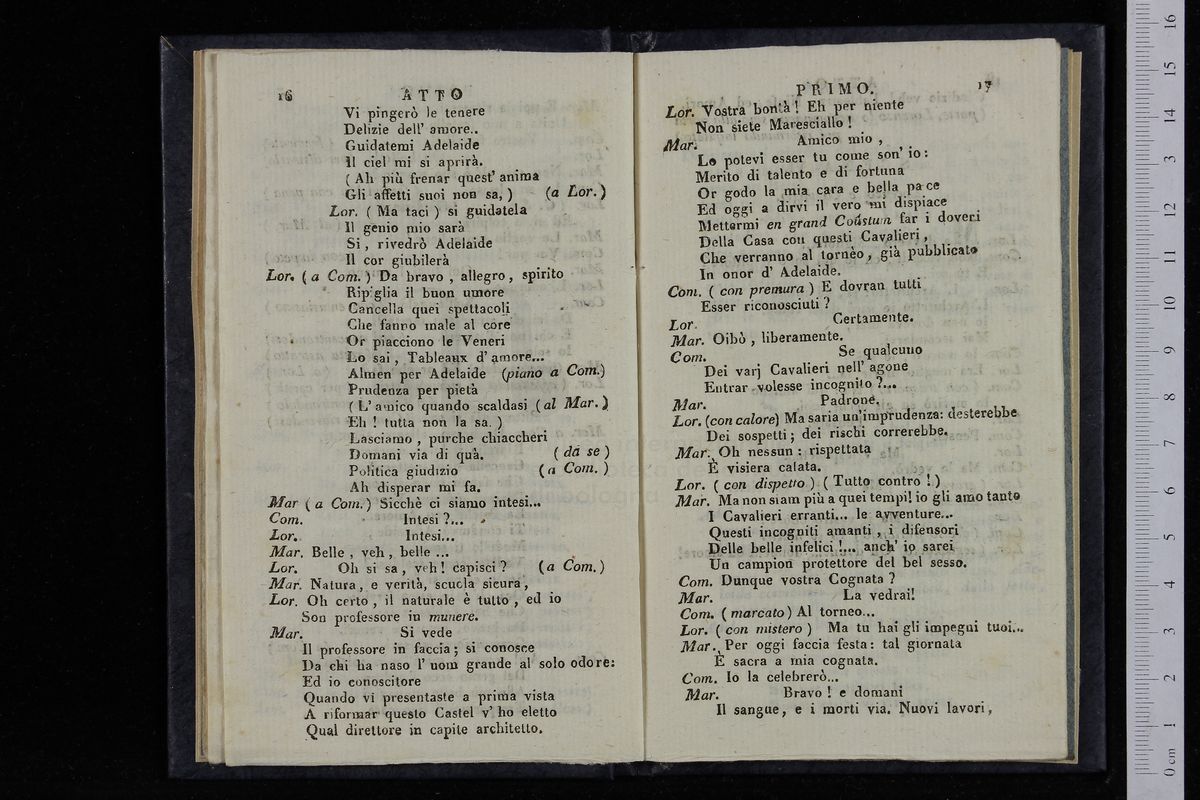 16 ATTO
Vi pingerò le tenere
Delizie dell' amore..
Guidatemi Adelaide
Il ciel mi si aprirà.
( Ah più frenar quest' anima
Gli affetti suoi non sa, ) (a Lor.)
Lor. ( Ma taci ) si guidatela
Il genio mio sarà
Si, rivedrò Adelaide
Il cor giubilerà
Lor. ( a Com. ) Da bravo , allegro , spirito
Ripiglia il buon umore
Cancella quei spettacoli
Che fanno male al core
Or piacciono le Veneri
Lo sai , Tableaux d' amore...
Almen per Adelaide (piano a Com.)
Prudenza per pietà
( L' amico quando scaldasi (al Mar.)
Eh ! tutta non la sa. )
Lasciamo , purche chiaccheri
Domani via di quà. ( da se )
Politica giudizio (a Com. )
Ah disperar mi fa.
Mar ( a Com. ) Sicchè ci siamo intesi...
Com. Intesi ?...
Lor. Intesi...
Mar. Belle , veh , belle ...
Lor. Oh si sa , veh ! capisci ? (a Com.)
Mar. Natura, e verità, scucla sicura ,
Lor. Oh certo , il naturale è tutto , ed io
Son professore in munere.
Mar. Si vede
Il professore in faccia ; si conosce
Da chi ha naso l' uom grande al solo odore:
Ed io conoscitore
Quando vi presentaste a prima vista
A riformar questo Castel v' ho eletto
Qual direttore in capite architetto.
PRIMO. 17
Lor. Vostra bontà ! Eh per niente
Non siete Maresciallo !
Mar. Amico mio ,
Lo potevi esser tu come son' io :
Merito di talento e di fortuna
Or godo la mia cara e bella pace
Ed oggi a dirvi il vero mi dispiace
Mettermi en grand Coustum far i doveri
Della Casa con questi Cavalieri ,
Che verranno al tornèo , già pubblicato
In onor d' Adelaide.
Com. ( con premura ) E dovran tutti
Esser riconosciuti ?
Lor. Certamente.
Mar. Oibò , liberamente.
Com. Se qualcuno
Dei varj Cavalieri nell' agone
Entrar volesse incognito ?...
Mar. Padrone.
Lor. (con calore) Ma saria un'imprudenza: desterebbe
Dei sospetti ; dei rischi correrebbe.
Mar. Oh nessun : rispettata
È visiera calata.
Lor. ( con dispetto ) ( Tutto contro ! )
Mar. Ma non siam più a quei tempi! io gli amo tanto
I Cavalieri erranti... le avventure...
Questi incogniti amanti , i difensori
Delle belle infelici !... anch' io sarei
Un campion protettore del bel sesso.
Com. Dunque vostra Cognata ?
Mar. La vedrai!
Com. ( marcato ) Al torneo...
Lor. ( con mistero ) Ma tu hai gli impegni tuoi...
Mar. Per oggi faccia festa : tal giornata
È sacra a mia cognata.
Com. Io la celebrerò...
Mar. Bravo ! e domani
Il sangue , e i morti via. Nuovi lavori ,
0 cm 1 2 3 4 5 6 7 8 9 10 11 12 13 14 15 16